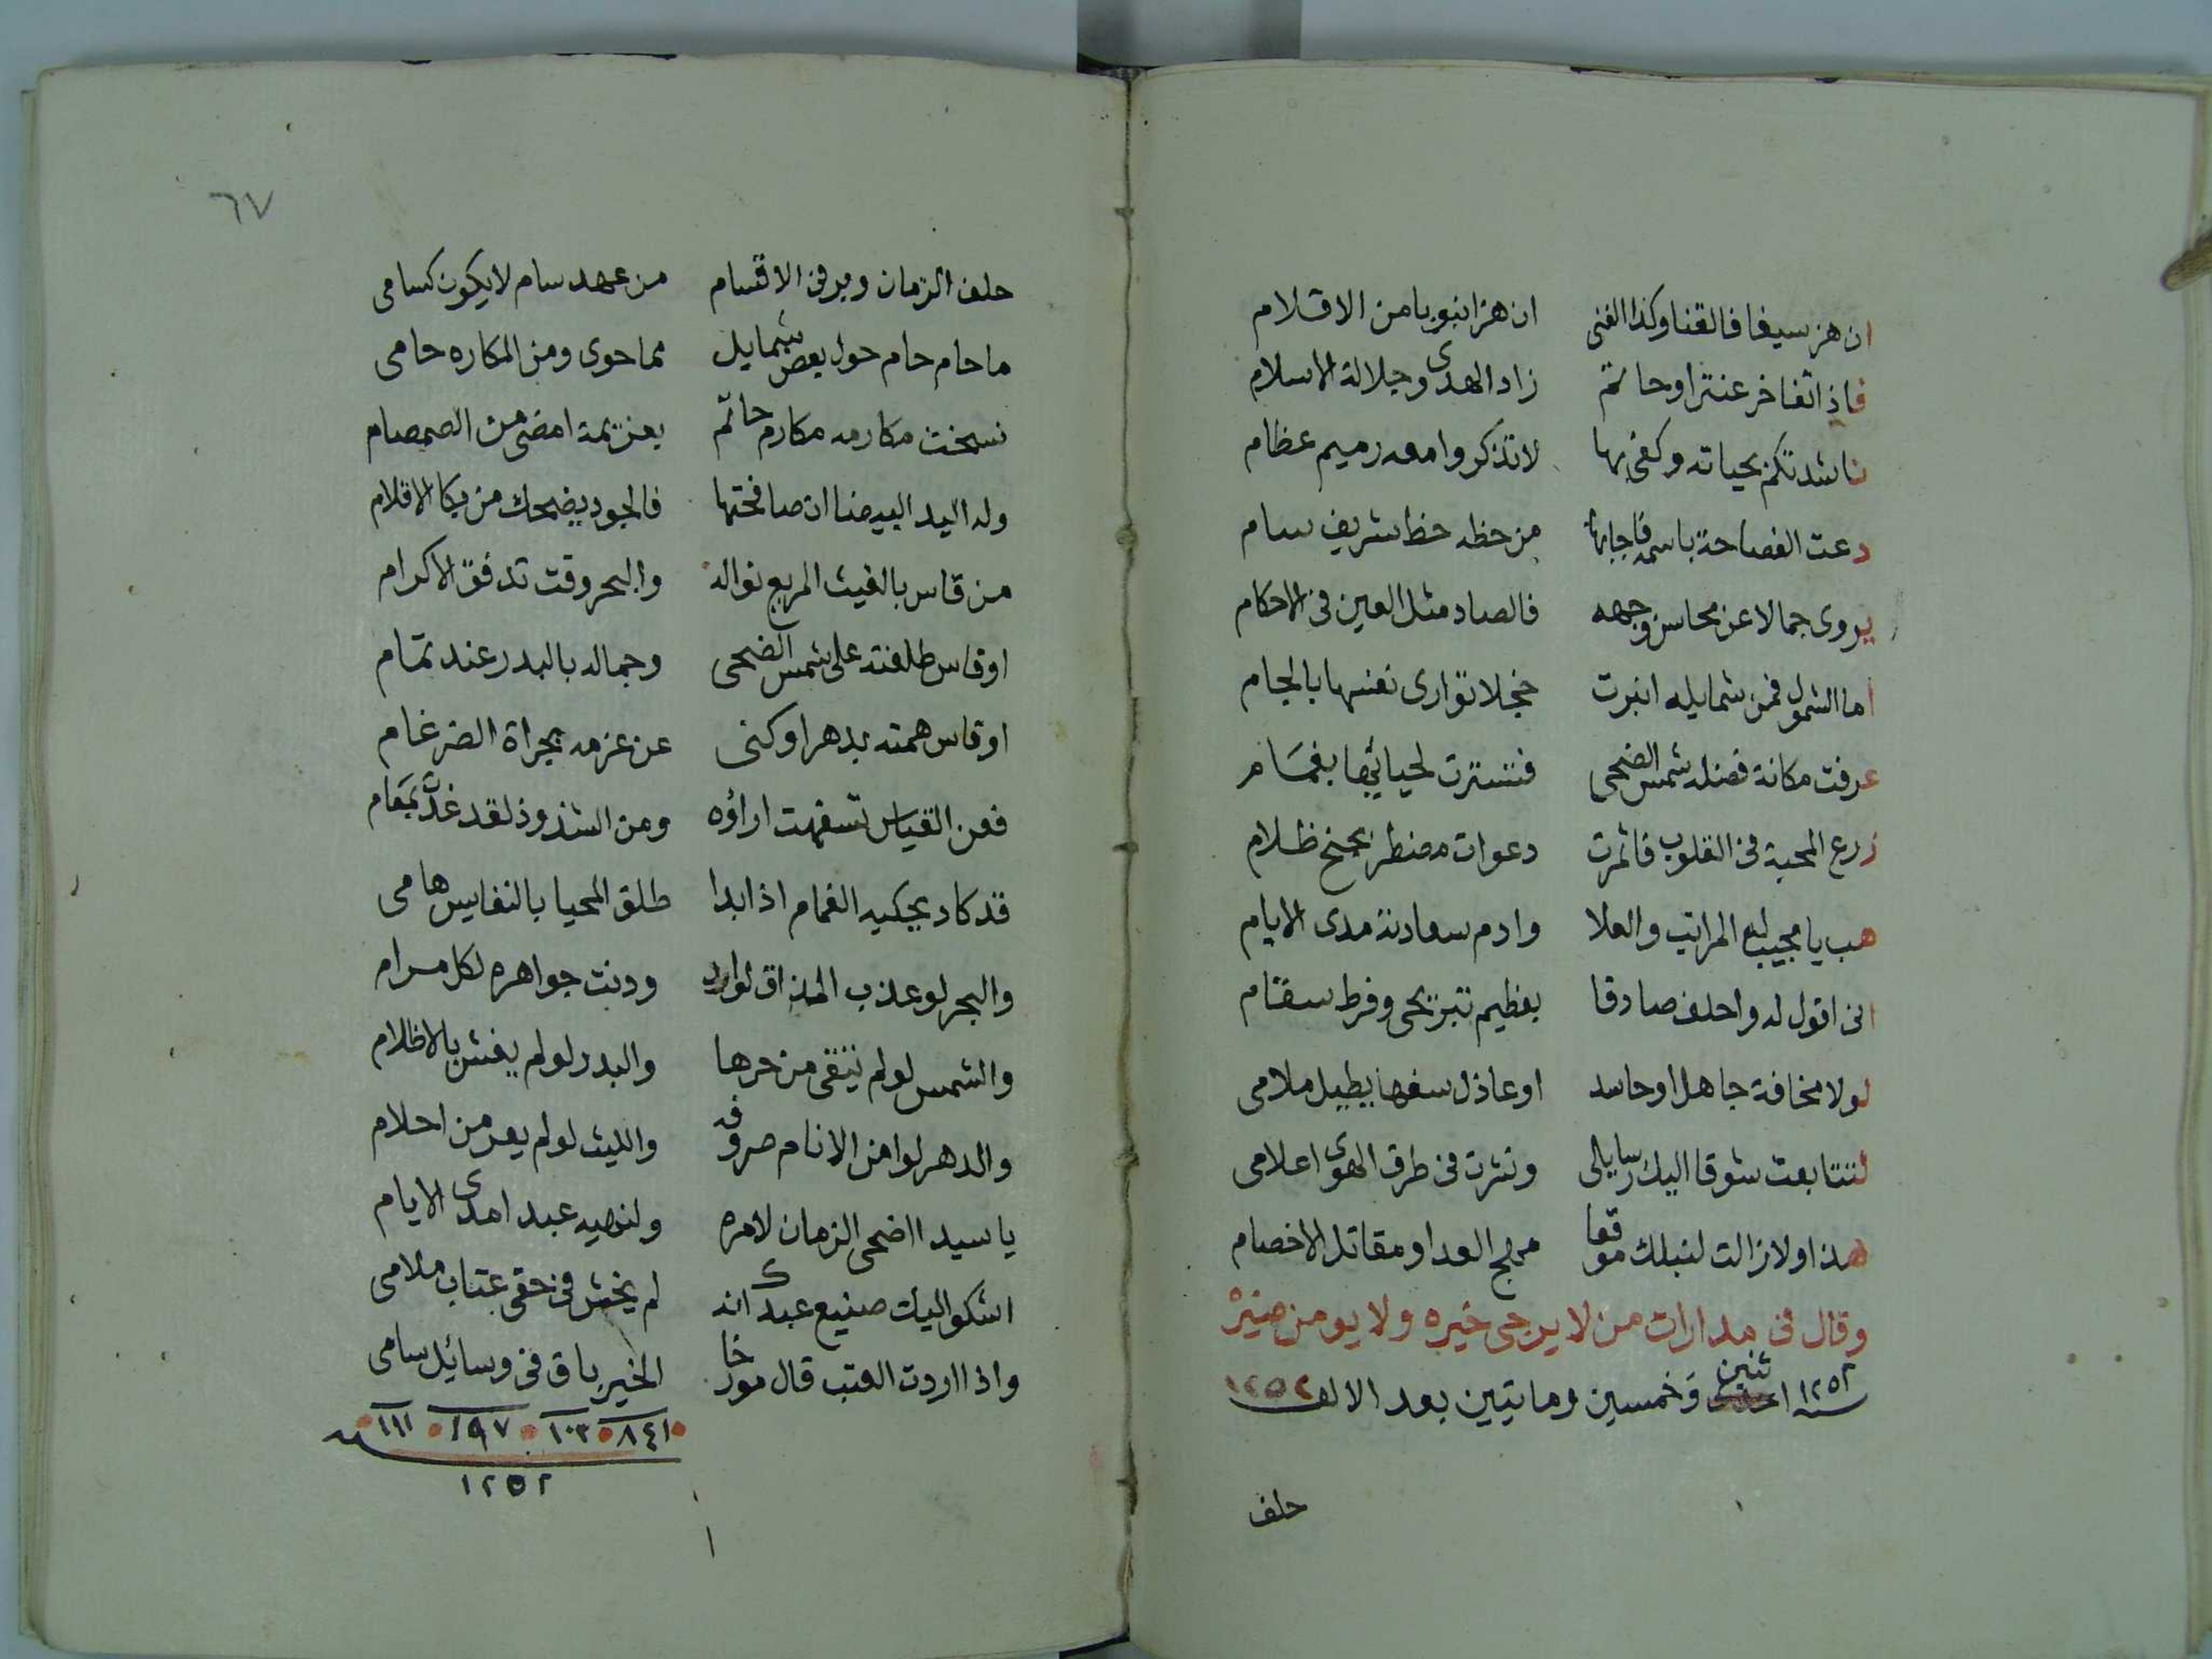 ان هز سيفا فالقنا وكذا الفنى ان هز انبوبا من الاقلام
فاذا تفاخر عنترا وحاتم زاد الهدى وجلالة الاسلام
ناشدتكم بحياته وكفى بها لا تذكروا معه رميم عظام
دعت الفصاحة باسمه فاجابها من حظه حظ شريف سام
يروى جمالا عن محاسن وجهه فالصاد مثل العين فى الاحكام
اما الشمول فمن شمايله انبرت خجلا توارى نفسها بالجام
عرفت مكانة فضله شمس الضحى فتسترت لحيائها بغمام
زرع المحبة فى القلوب فاثمرت دعوات مضطر بجنح ظلام
هب يا مجيب له المراتب والعلا وادم سعادته مدى الايام
انى اقول له واحلف صادقا بعظيم تبريحى وفرط سقام
لولا مخافة جاهل او حاسد او عاذل سفها يطيل ملامى
لتتابعت شوقا اليك رسايلى ونثرت فى طرق الهوى اعلامى
هذا ولا زالت لنبلك موقعا مهج العدا ومقاتل الاخصام
وقال فى مدارات من لا يرجى خيره ولا يومن ضيره
سنة ١٢٥٢ ثنين وخمسين ومايتين بعد الالف ١٢٥٢
حلف
٦٧
حلف الزمان وبر فى الاقسام من عهد سام لا يكون كسامى
ما حام حام حول بعض شمايل مما حوى ومن المكاره حامى
نسخت مكارمه مكارم حاتم بعزيمة امضى من الصمصام
وله اليد البيضا ان صافحتها فالجود يضحك من بكا الاقلام
من قاس بالغيث المريع نواله والبحر وقت تدفق الاكرام
او قاس طلعته على شمس الضحى وجماله بالبدر عند تمام
او قاس همته بدهر او كنى عن عزمه بجراة الضرغام
فعن القياس تسفهت اراؤه ومن الشذوذ لقد غدّ بمقام
قد كاد يحكيه الغمام اذا بدا طلق المحيا بالنفايس هامى
والبحر لو عذب المذاق لوارد ودنت جواهره لكل مرام
والشمس لو لم نتقى من حرها والبدر لو لم يغش بالاظلام
والدهر لو امن الانام صروفه والليث لو لم يعر من احلام
يا سيدا اضحى الزمان لامره ولنهيه عبدا مدى الايام
اشكو اليك صنيع عبدك انه لم يخش فى حقى عتاب ملامى
واذا اردت العتب قال مورخا الخير باق فى وسائل سامى
٨٤١ ١٠٣ ١٩٧ ١١١
١٢٥٢